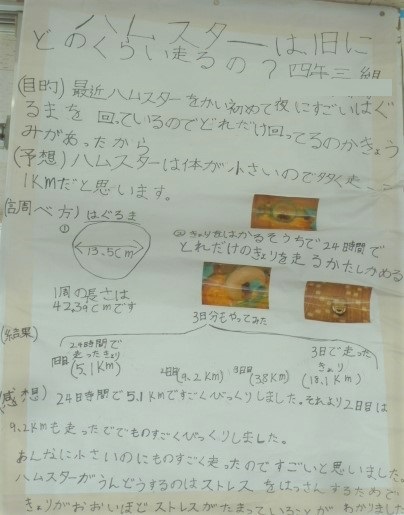 ハムスターは1日に
どのくらい走るの？四年三組
(目的)最近ハムスターをかい初めて夜にすごいはぐ
るまを回っているのでどれだけ回ってるのかきょう
みがあったから
(予想)ハムスターは体が小さいので多く走
1Kmだと思います。
(調べ方)はぐるま
①
13.5Cm
1周の長さは
42.39Cmです
②きょりをはかるそうちで24時間で
どれだけのきょりを走るかたしかめる
3日分もやってみた
(結果)
24時間で
走ったきょり
1日目(5.1Km)
2日目(9.2Km)
3日目(3.8Km)
3日で走った
きょり
(18.1Km)
(感想)24時間で5.1Kmですごくびっくりしました。それより2日目は
9.2Kmも走ったででものすごくびっくりしました。
あんなに小さいのにものすごく走ったのですごいと思いました。
ハムスターがうんどうするのはストレスをはっさんするためで
きょりがおおいほどストレスがたまっていることがわかりました